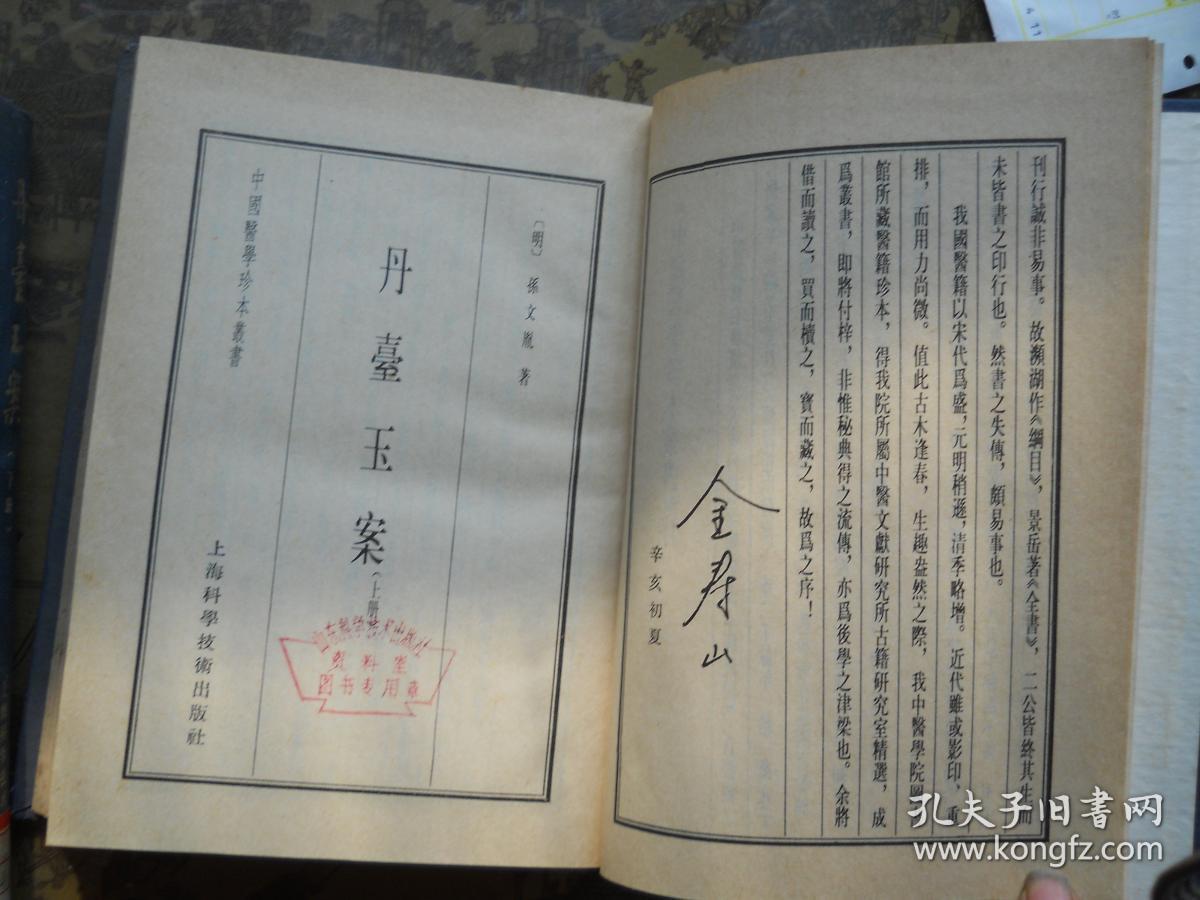 刊行誠非易事。故瀕湖作《綱目》，景岳著《全書》，二公皆終其生而
未皆書之印行也。然書之失傳，頗易事也。
我國醫籍以宋代爲盛，元明稍遜，清季略增。近代雖或影印、重
排，而用力尚微。值此古木逢春，生趣盎然之際，我中醫學院圖
館所藏醫籍珍本，得我院所屬中醫文獻研究所古籍研究室精選，成
爲叢書，即將付梓，非惟秘典得之流傳，亦爲後學之津梁也。余將
借而讀之，買而櫝之，寶而藏之，故爲之序！
金寿山
辛亥初夏
〔明〕 孫文胤 著
丹臺玉案（上册）
中國醫學珍本叢書
上海科學技術出版社
山东科学技术出版社
资料室
图书专用章
孔夫子旧书网
www.kongfz.com